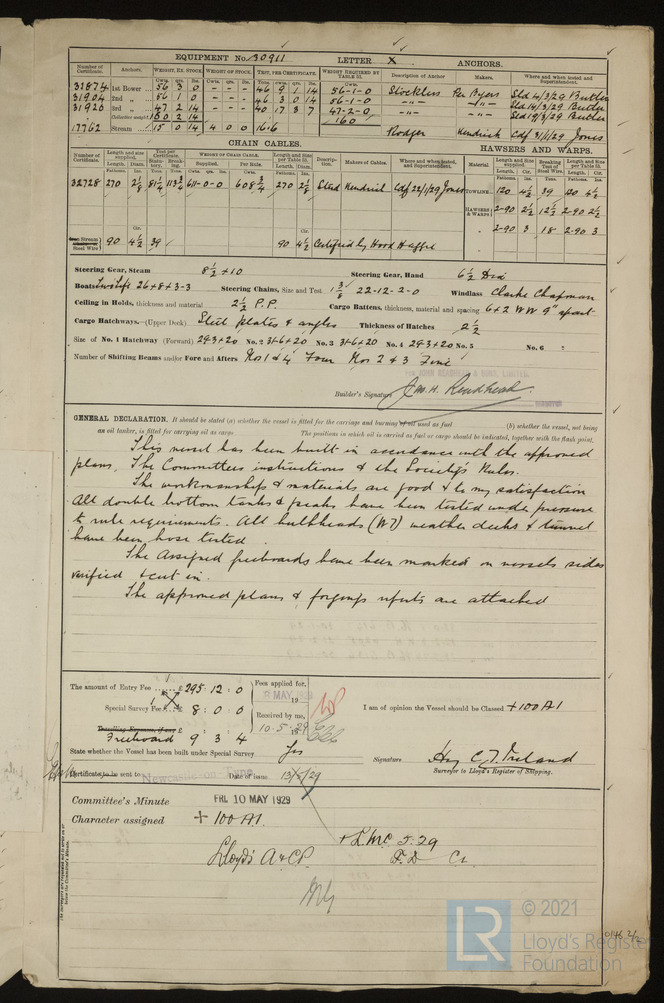 EQUIPMENT No. 30911 LETTER X ANCHORS.
Number of Certificate. Anchors. WEIGHT, EX. STOCK. WEIGHT OF STOCK. TEST, PER CERTIFICATE. WEIGHT REQUIRED BY TABLE 31. Description of Anchor Makers. Where and when tested and Superintendent.
31874 1st Bower 56 3 0 - - - 46 9 1 14 56-1-0 Stockless Per Byers Sld 4/3/29 Butler
31904 2nd " 56 1 0 - - - 46 3 0 14 56-1-0 -"- -"- Sld 14/3/29 Butler
31920 3rd " 47 2 14 - - - 40 17 3 7 47-2-0 -"- -"- Sld 19/3/29 Butler
Collective weight 160 2 14 160
17762 Stream 15 0 14 4 0 0 16-6 Rodger Kendrick Cdf 31/1/29 Jones
CHAIN CABLES. HAWSERS AND WARPS.
Number of Certificate. Length and size supplied. Test per Certificate. WEIGHT OF CHAIN CABLE. Length and Size per Table 31. Description. Makers of Cables. Where and when tested, and Superintendent. Material Length and Size supplied. Breaking Test of Steel Wire. Length and Size per Table 31.
32728 270 2 1/8 81 1/4 113 3/4 611-0-0 608 3/4 270 2 1/8 Stud Kendrick Cdf 22/1/29 Jones TOWLINE 120 4 1/2 39 120 4 1/2
HAWSERS & WARPS 2-90 2 1/2 12 1/2 2-90 2 1/2
" 2-90 3 18 2-90 3
Stream Steel Wire 90 4 1/2 39 90 4 1/2 Certified by Hood Haggie
Steering Gear, Steam 8 1/2 + 10 Steering Gear, Hand 6 1/2 Dia
Boats Two Life 26+8+3-3 Steering Chains, Size and Test 1 3/8 22-12-2-0 Windlass Clarke Chapman
Ceiling in Holds, thickness and material 2 1/2 P.P. Cargo Battens, thickness, material and spacing 6+2 WW 9" apart
Cargo Hatchways.-(Upper Deck) Steel plates & angles Thickness of Hatches 2 1/2
Size of No. 1 Hatchway (Forward) 29-3+20 No. 2 31-6+20 No. 3 31-6+20 No. 4 29-3+20 No. 5 No. 6
Number of Shifting Beams and/or Fore and Afters Nos 1 & 4 Four Nos 2 & 3 Five
FOR JOHN READHEAD & SONS, LIMITED.
Builder's Signature Jas. H. Readhead
GENERAL DECLARATION. It should be stated (a) whether the vessel is fitted for the carriage and burning of oil used as fuel (b) whether the vessel, not being
an oil tanker, is fitted for carrying oil as cargo The positions in which oil is carried as fuel or cargo should be indicated, together with the flash point.
This vessel has been built in accordance with the approved
plans, The Committees instructions & the Society's Rules.
The workmanship & materials are good & to my satisfaction
All double bottom tanks & peaks have been tested under pressure
to rule requirements. All bulkheads (W.T) weather decks & tunnel
have been hose tested.
The Assigned freeboards have been marked on vessels sides
verified & cut in.
The approved plans & forgings reports are attached
The amount of Entry Fee £ 295 : 12 : 0 Fees applied for,
8 MAY 1929
Special Survey Fee £ 8 : 0 : 0 Received by me, I am of opinion the Vessel should be Classed +100A1
Travelling Expenses, if any £
Freeboard 9 3 4 10-5-29
State whether the Vessel has been built under Special Survey Yes Signature Hny C. J. Ireland
Surveyor to Lloyd's Register of Shipping.
Certificate to be sent to Newcastle on Tyne Date of issue 13/5/29
Committee's Minute FRI. 10 MAY 1929
Character assigned + 100 A1.
+ L.M.C. 5.29
Lloyd's A & C.P. F.D Cl.
© 2021
Lloyd's Register
Foundation
LR
0146 2/2